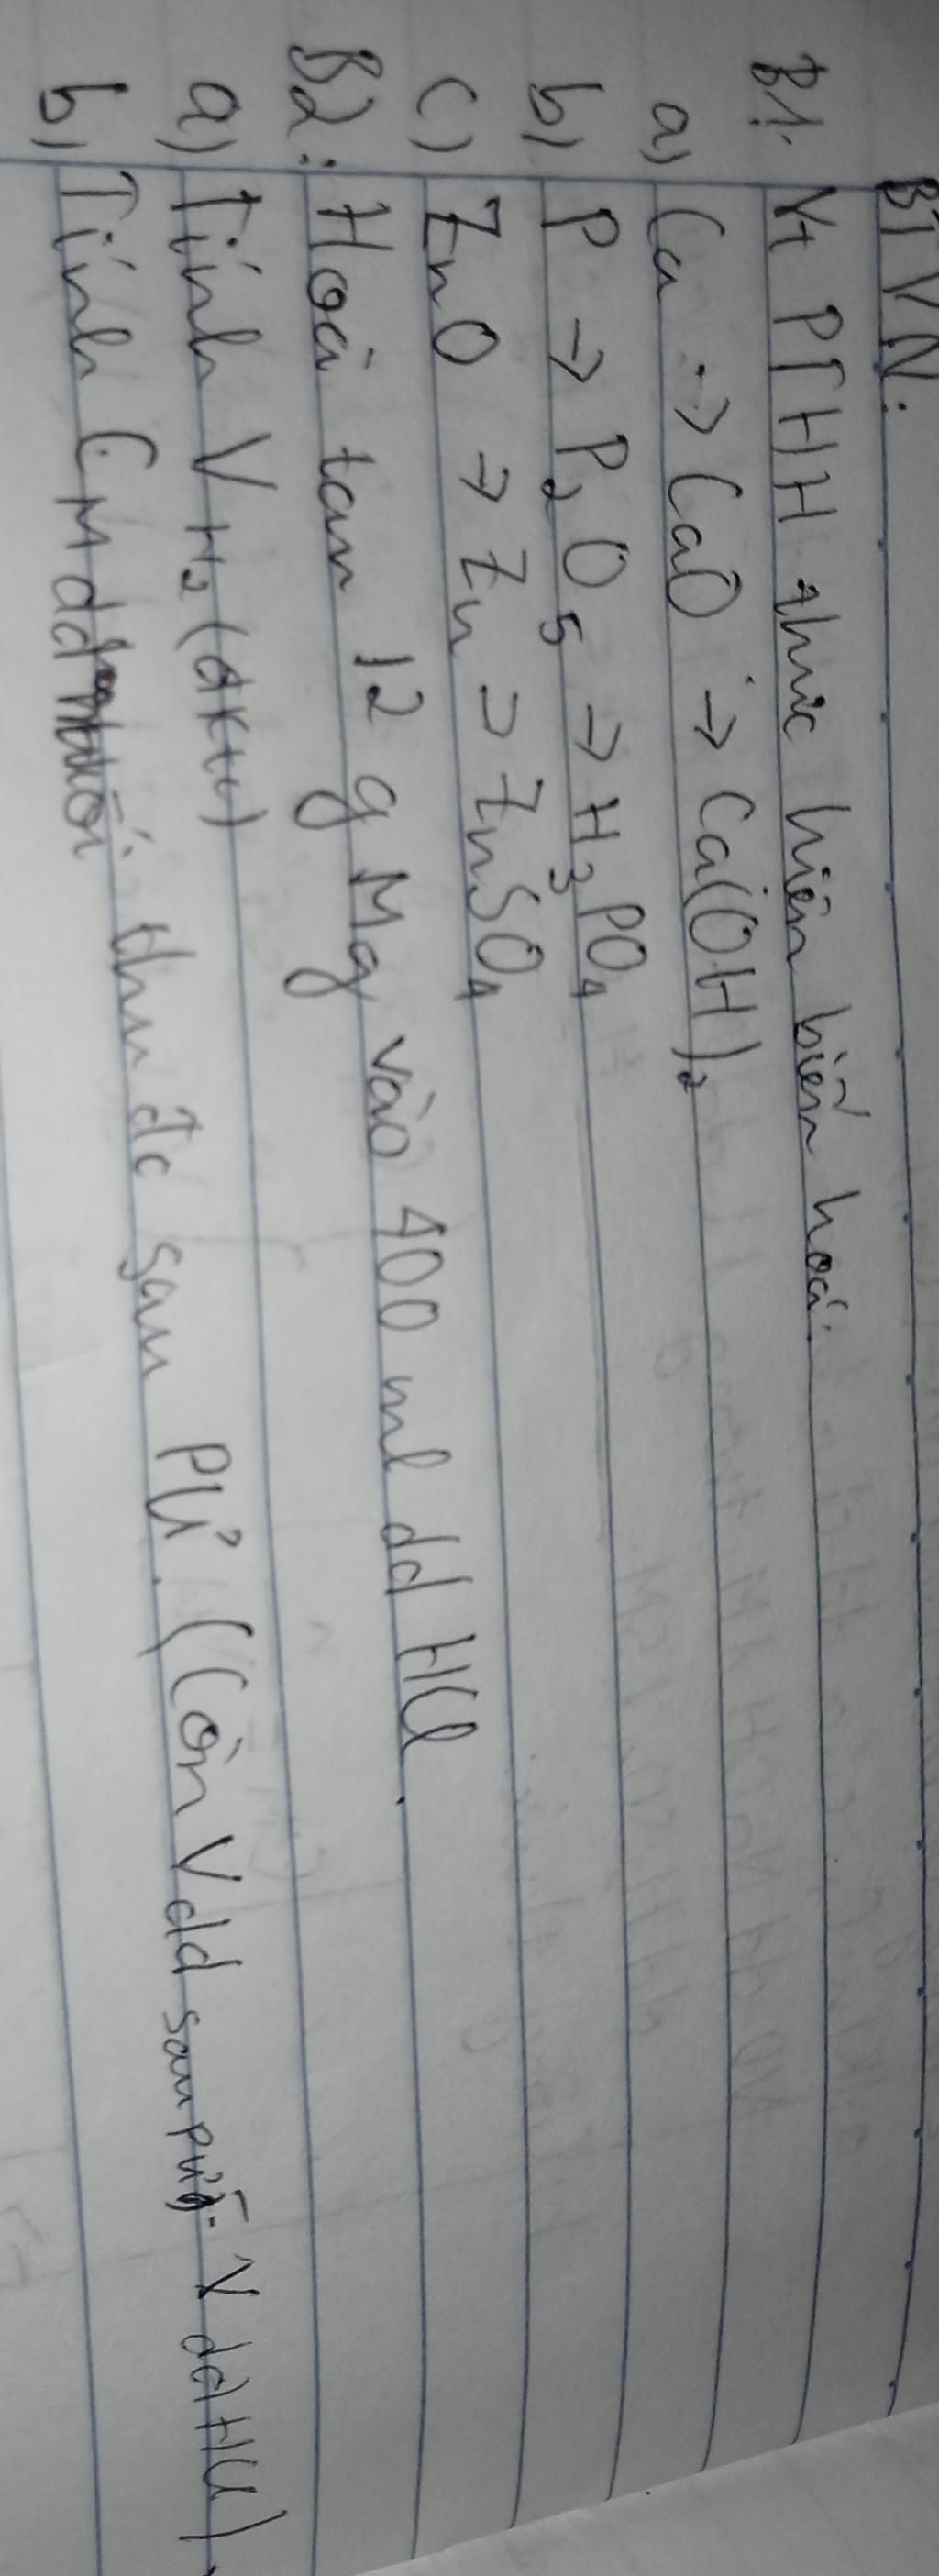 BTVN:
B1. Vt PTHH thực hiện biến hoá:
a) Ca → CaO → Ca(OH)2
b) P → P2O5 → H3PO4
c) ZnO → Zn → ZnSO4
B2: Hoà tan 12 g Mg vào 400 ml dd HCl.
a) Tính VH2 (đktc)
b) Tính CM dd muối thu đc sau PƯ. (Còn Vdd sau pư = V dd HCl)